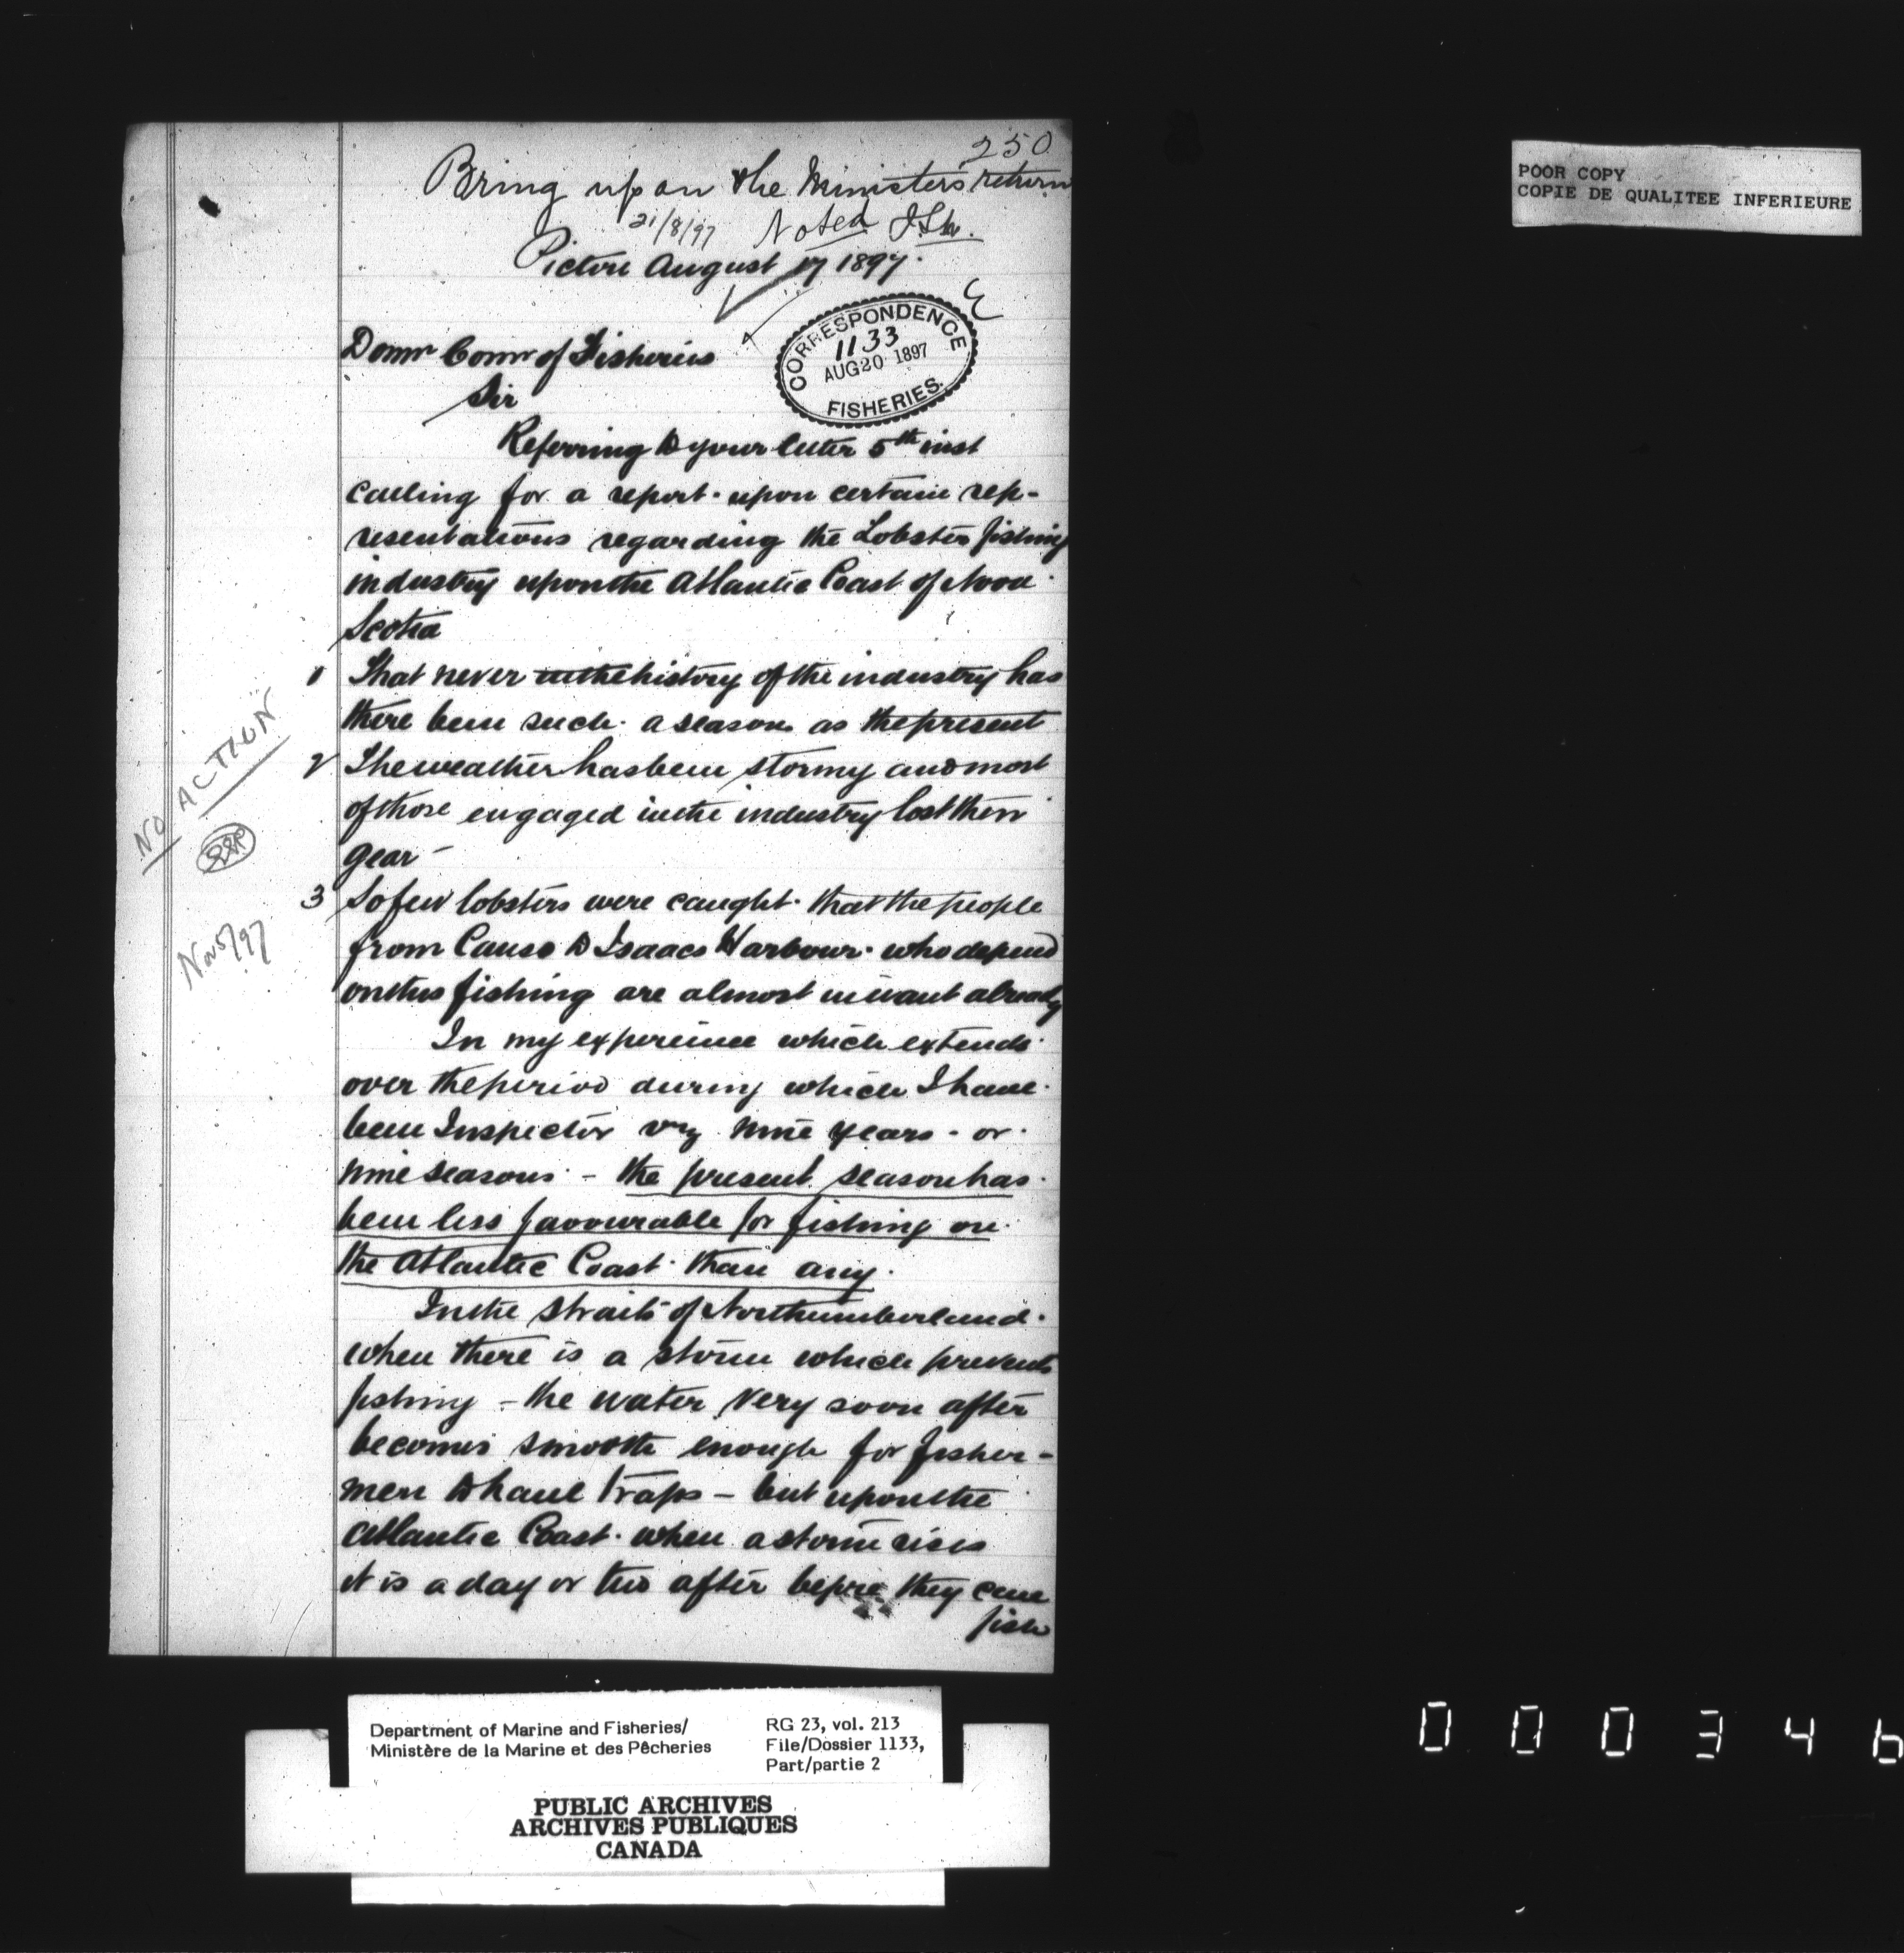 250
Bring up on the Ministers return
21/8/97 Noted
Pictou August 17 1897.
CORRESPONDENCE
1133
AUG 20 1897
FISHERIES.
Domn Comr of Fisheries
Sir
Referring to your letter 5th inst
calling for a report upon certain rep-
resentations regarding the Lobster fishing
industry upon the Atlantic Coast of Nova
Scotia
1 That never in the history of the industry has
there been such a season as the present
2 The weather has been stormy and most
of those engaged in the industry lost their
gear -
3 So few lobsters were caught that the people
from Canso to Isaacs Harbour who depend
on this fishing are almost in want already
NO ACTION
Nov 5/97
In my experience which extends
over the period during which I have
been Inspector vz nine years - or
nine seasons - the present season has
been less favourable for fishing on
the Atlantic Coast than any.
In the Straits of Northumberland
when there is a storm which prevents
fishing - the water very soon after
becomes smooth enough for fisher-
men to haul traps - but upon the
Atlantic Coast when a storm rises
it is a day or two after before they can
fish
POOR COPY
COPIE DE QUALITEE INFERIEURE
Department of Marine and Fisheries/
Ministère de la Marine et des Pêcheries
RG 23, vol. 213
File/Dossier 1133,
Part/partie 2
PUBLIC ARCHIVES
ARCHIVES PUBLIQUES
CANADA
000346